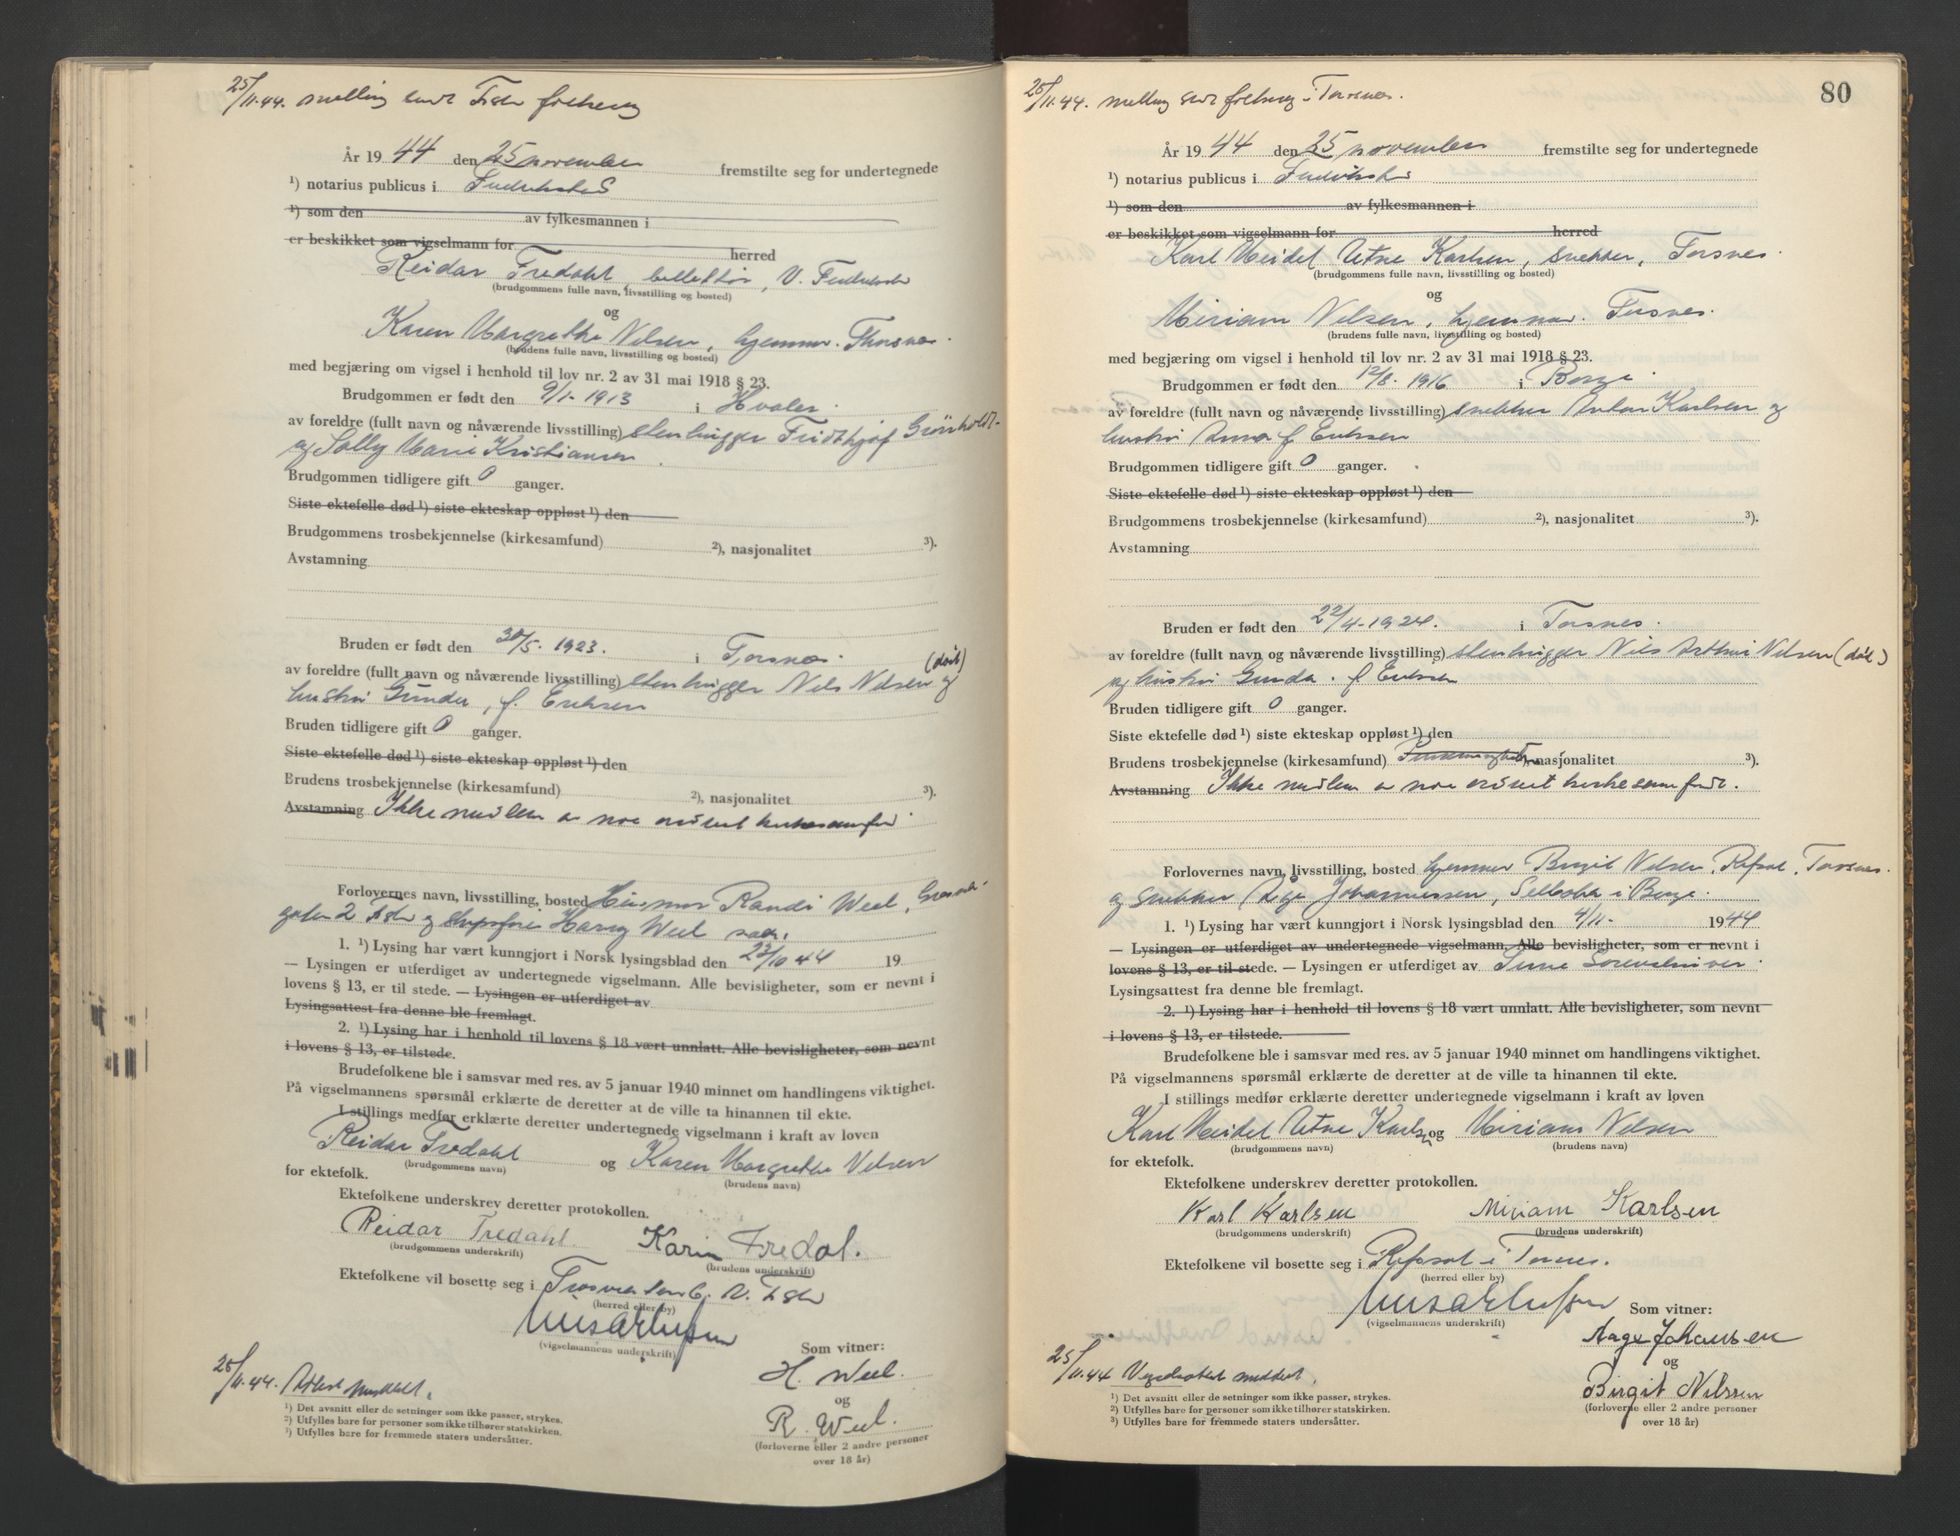 25/11.44. melling sendt Fstr folkereg
År 19 44 den 25 november fremstilte seg for undertegnede
¹) notarius publicus i Fredrikstad
¹) som den av fylkesmannen i
er beskikket som vigselmann for herred
Reidar Fredahl, V. Fredrikstad
(brudgommens fulle navn, livsstilling og bosted)
og
Karen Margrethe Nilsen, hjemmev. Thorsnes
(brudens fulle navn, livsstilling og bosted)
med begjæring om vigsel i henhold til lov nr. 2 av 31 mai 1918 § 23.
Brudgommen er født den 9/1-1913 i Hvaler.
av foreldre (fullt navn og nåværende livsstilling) stenhugger Fridthjof Grönholdt-
og Solly Marie Kristiansen.
Brudgommen tidligere gift 0 ganger.
Siste ektefelle død ¹) siste ekteskap oppløst ¹) den
Brudgommens trosbekjennelse (kirkesamfund) ²), nasjonalitet ³).
Avstamning
Bruden er født den 30/5-1923. i Torsnes.
av foreldre (fullt navn og nåværende livsstilling) stenhugger Nils Nilsen (död) og
hustru Gunda, f. Eriksen
Bruden tidligere gift 0 ganger.
Siste ektefelle død ¹) siste ekteskap oppløst ¹) den
Brudens trosbekjennelse (kirkesamfund) ²), nasjonalitet ³).
Avstamning Ikke medlem av noe ordnet kirkesamfund.
Forlovernes navn, livsstilling, bosted Husmor Randi Weel,
gaten 2 Fstr og Harry Weel
1. ¹) Lysing har vært kunngjort i Norsk lysingsblad den 23/10 44 19
— Lysingen er utferdiget av undertegnede vigselmann. Alle bevisligheter, som er nevnt i
lovens § 13, er til stede. — Lysingen er utferdiget av
Lysingsattest fra denne ble fremlagt.
2. ¹) Lysing har i henhold til lovens § 18 vært unnlatt. Alle bevisligheter, som nevnt
i lovens § 13, er tilstede.
Brudefolkene ble i samsvar med res. av 5 januar 1940 minnet om handlingens viktighet.
På vigselmannens spørsmål erklærte de deretter at de ville ta hinannen til ekte.
I stillings medfør erklærte deretter undertegnede vigselmann i kraft av loven
Reidar Fredahl og Karen Margrethe Nilsen
(brudgommens navn) (brudens navn)
for ektefolk.
Ektefolkene underskrev deretter protokollen.
Reidar Fredahl. Karin Fredal.
(brudgommens underskrift) (brudens underskrift)
Ektefolkene vil bosette seg i V. Fstr
(herred eller by)
(vigselmannens underskrift)
Som vitner:
25/11.44. Attest meddelt.
H. Weel.
og
R. Weel.
(forloverne eller 2 andre personer
over 18 år)
¹) Det avsnitt eller de setninger som ikke passer, strykes.
²) Utfylles bare for personer som ikke tilhører statskirken.
³) Utfylles bare for fremmede staters undersåtter.
80
25/11.44. melling sendt folkereg i Torsnes.
År 19 44 den 25 november fremstilte seg for undertegnede
¹) notarius publicus i Fredrikstad
¹) som den av fylkesmannen i
er beskikket som vigselmann for herred
Karl Meidel Arne Karlsen, snekker, Torsnes.
(brudgommens fulle navn, livsstilling og bosted)
og
Miriam Nilsen, hjemmev. Torsnes.
(brudens fulle navn, livsstilling og bosted)
med begjæring om vigsel i henhold til lov nr. 2 av 31 mai 1918 § 23.
Brudgommen er født den 12/8-1916 i Borge.
av foreldre (fullt navn og nåværende livsstilling) snekker Anton Karlsen og
hustru Anna f. Eriksen
Brudgommen tidligere gift 0 ganger.
Siste ektefelle død ¹) siste ekteskap oppløst ¹) den
Brudgommens trosbekjennelse (kirkesamfund) ²), nasjonalitet ³).
Avstamning
Bruden er født den 22/4-1924. i Torsnes.
av foreldre (fullt navn og nåværende livsstilling) stenhugger Nils Arthur Nilsen (död)
og hustru Gunda. f. Eriksen
Bruden tidligere gift 0 ganger.
Siste ektefelle død ¹) siste ekteskap oppløst ¹) den
Brudens trosbekjennelse (kirkesamfund) nasjonalitet ³).
Avstamning Ikke medlem av noe ordnet kirkesamfund.
Forlovernes navn, livsstilling, bosted hjemmev Birgit Nilsen, Refsal, Torsnes.
og snekker Åge Johannessen, Sellebakk i Borge.
1. ¹) Lysing har vært kunngjort i Norsk lysingsblad den 4/11- 1944
— Lysingen er utferdiget av undertegnede vigselmann. Alle bevisligheter, som er nevnt i
lovens § 13, er til stede. — Lysingen er utferdiget av Tune Sorenskriver
Lysingsattest fra denne ble fremlagt.
2. ¹) Lysing har i henhold til lovens § 18 vært unnlatt. Alle bevisligheter, som nevnt
i lovens § 13, er tilstede.
Brudefolkene ble i samsvar med res. av 5 januar 1940 minnet om handlingens viktighet.
På vigselmannens spørsmål erklærte de deretter at de ville ta hinannen til ekte.
I stillings medfør erklærte deretter undertegnede vigselmann i kraft av loven
Karl Meidel Arne Karlsen og Miriam Nilsen
(brudgommens navn) (brudens navn)
for ektefolk.
Ektefolkene underskrev deretter protokollen.
Karl Karlsen Miriam Karlsen
(brudgommens underskrift) (brudens underskrift)
Ektefolkene vil bosette seg i Refsal i Torsnes.
(herred eller by)
(vigselmannens underskrift)
Som vitner:
Aage Johansen
og
25/11.44 Vigselsattest meddelt.
Birgit Nilsen
(forloverne eller 2 andre personer
over 18 år)
¹) Det avsnitt eller de setninger som ikke passer, strykes.
²) Utfylles bare for personer som ikke tilhører statskirken.
³) Utfylles bare for fremmede staters undersåtter.